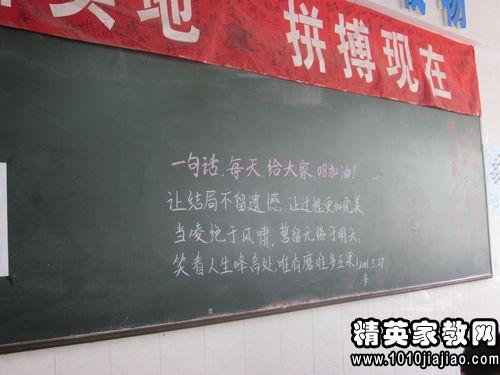 拼搏现在
一句话,每天,给大家,08加油!
让结局不留遗憾,让过程更加完美,
当凌绝于风啸,誓留无悔于明天;
笑看人生峰高处,唯有磨难多正果!
精英家教网
www.1010jiajiao.com